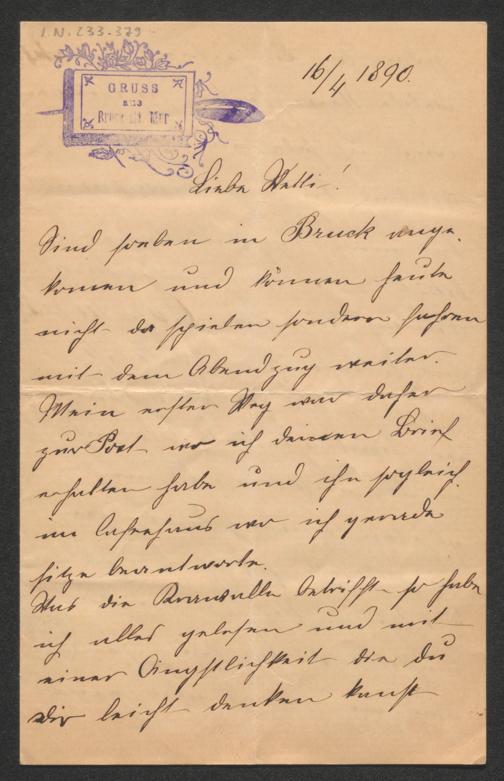 I.N. 233.379
GRUSS
aus
Bruck a/d Mur
16/4 1890.
Liebe Welli!
Sind soeben in Bruck ange-
komen und können heute
nicht da spielen sondern fahren
mit dem Abendzug weiter.
Mein erster Weg war daher
zur Post wo ich deinen Brief
erhalten habe und ihn sogleich
im Cafeehaus wo ich gerade
sitze beantworte.
Was die Krawalle betrifft so habe
ich alles gelesen und mit
einer Ängstlichkeit die du
dir leicht denken kanst